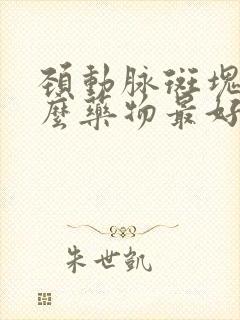 頸動脉斑塊
麼藥物最好
朱世凱